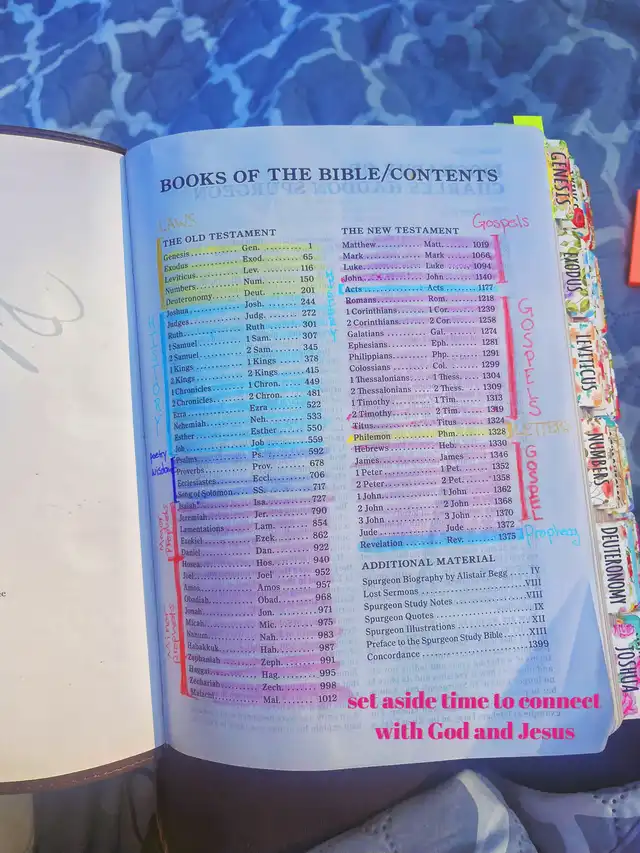 BOOKS OF THE BIBLE/CONTENTS
LAWS
THE OLD TESTAMENT
Genesis Gen. 1
Exodus Exod. 65
Leviticus Lev. 116
Numbers Num. 150
Deuteronomy Deut. 201
Joshua Josh. 244
Judges Judg. 272
Ruth Ruth 301
1 Samuel 1 Sam. 307
2 Samuel 2 Sam. 345
1 Kings 1 Kings 378
2 Kings 2 Kings 415
1 Chronicles 1 Chron. 449
2 Chronicles 2 Chron. 481
Ezra Ezra 522
Nehemiah Neh. 533
Esther Esther 550
Job Job 559
Psalms Ps. 592
Proverbs Prov. 678
Ecclesiastes Eccl. 706
Song of Solomon SS. 717
Isaiah Isa. 727
Jeremiah Jer. 790
Lamentations Lam. 854
Ezekiel Ezek. 862
Daniel Dan. 922
Hosea Hos. 940
Joel Joel 952
Amos Amos 957
Obadiah Obad. 968
Jonah Jon. 971
Micah Mic. 975
Nahum Nah. 983
Habakkuk Hab. 987
Zephaniah Zeph. 991
Haggai Hag. 995
Zechariah Zech. 998
Malachi Mal. 1012
Poetry
Wisdom
Major
Prophets
minor
prophets
Gospels
THE NEW TESTAMENT
Matthew Matt. 1019
Mark Mark 1066
Luke Luke 1094
John John 1140
Acts Acts 1177
Romans Rom. 1218
1 Corinthians 1 Cor. 1239
2 Corinthians 2 Cor. 1258
Galatians Gal. 1274
Ephesians Eph. 1281
Philippians Php. 1291
Colossians Col. 1299
1 Thessalonians 1 Thess. 1304
2 Thessalonians 2 Thess. 1309
1 Timothy 1 Tim. 1313
2 Timothy 2 Tim. 1319
Titus Titus 1324
Philemon Phm. 1328
Hebrews Heb. 1330
James James 1346
1 Peter 1 Pet. 1352
2 Peter 2 Pet. 1358
1 John 1 John 1362
2 John 2 John 1368
3 John 3 John 1370
Jude Jude 1372
Revelation Rev. 1375
GOSPELS
LETTERS
GOSPEL
Prophecy
ADDITIONAL MATERIAL
Spurgeon Biography by Alistair Begg IV
Lost Sermons VIII
Spurgeon Study Notes VIII
Spurgeon Quotes IX
Spurgeon Illustrations XII
Preface to the Spurgeon Study Bible XIII
Concordance 1399
GENESIS
EXODUS
LEVITICUS
NUMBERS
DEUTERONOMY
JOSHUA
set aside time to connect
with God and Jesus